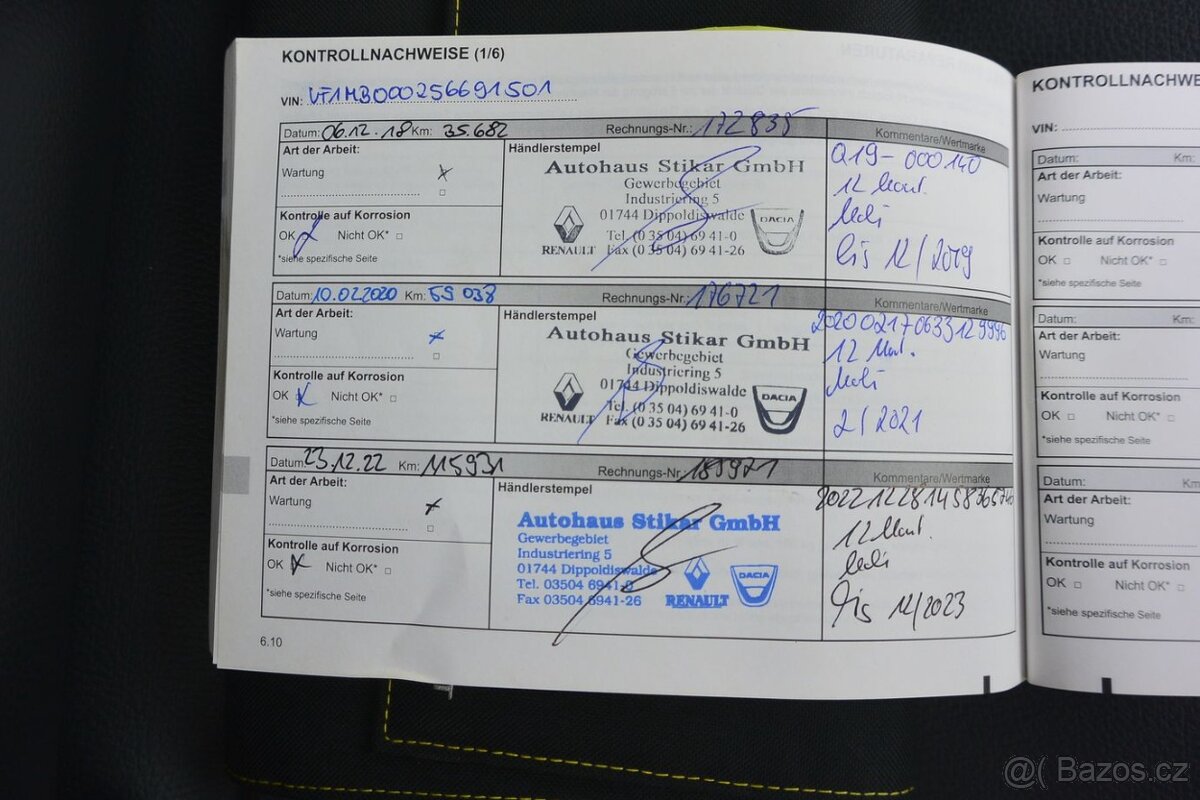 KONTROLLNACHWEISE (1/6)
VIN: VF1MB000256691501
Datum: 06.12.18 Km: 35.682 Rechnungs-Nr.: 172835 Kommentare/Wertmarke
Art der Arbeit:
Wartung
Kontrolle auf Korrosion
OK Nicht OK*
*siehe spezifische Seite
Händlerstempel
Autohaus Stikar GmbH
Gewerbegebiet
Industriering 5
01744 Dippoldiswalde
Tel. (0 35 04) 69 41-0
Fax (0 35 04) 69 41-26
RENAULT
DACIA
Q19-000140
12 Mont.
Mobi
bis 12/2019
Datum: 10.02.2020 Km: 59 038 Rechnungs-Nr.: 176721 Kommentare/Wertmarke
Art der Arbeit:
Wartung
Kontrolle auf Korrosion
OK Nicht OK*
*siehe spezifische Seite
Händlerstempel
Autohaus Stikar GmbH
Gewerbegebiet
Industriering 5
01744 Dippoldiswalde
Tel. (0 35 04) 69 41-0
Fax (0 35 04) 69 41-26
RENAULT
DACIA
202002170633129996
12 Mont.
Mobi
2/2021
Datum: 23.12.22 Km: 115931 Rechnungs-Nr.: 189971 Kommentare/Wertmarke
Art der Arbeit:
Wartung
Kontrolle auf Korrosion
OK Nicht OK*
*siehe spezifische Seite
Händlerstempel
Autohaus Stikar GmbH
Gewerbegebiet
Industriering 5
01744 Dippoldiswalde
Tel. 03504 6941-0
Fax 03504 6941-26
RENAULT
DACIA
12 Mont.
Mobi
bis 12/2023
6.10
KONTROLLNACHWE
VIN:
Datum: Km:
Art der Arbeit:
Wartung
Kontrolle auf Korrosion
OK Nicht OK*
*siehe spezifische Seite
Datum: Km:
Art der Arbeit:
Wartung
Kontrolle auf Korrosion
OK Nicht OK*
*siehe spezifische Seite
Datum: Km:
Art der Arbeit:
Wartung
Kontrolle auf Korrosion
OK Nicht OK*
*siehe spezifische Seite
@( Bazos.cz